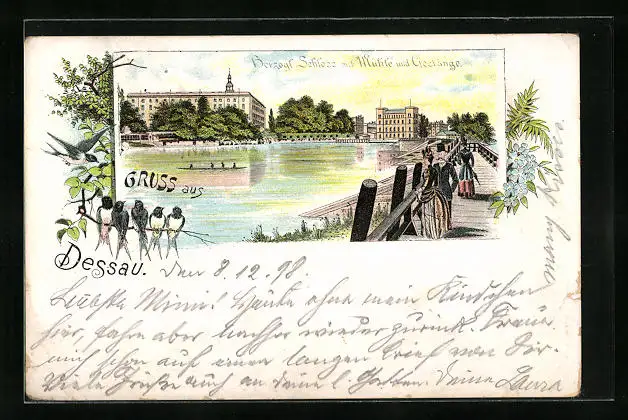 Herzogl. Schloss mit Mühle und Gestänge.
GRUSS aus
Dessau.
Den 8.12.98.
Liebste Mimi! Heute ohne mein Kindchen
hier, fahre aber nachher wieder zurück. Freue
mich schon auf einen langen Brief von Dir.
Viele Grüße auch an deine l. Deine Laura